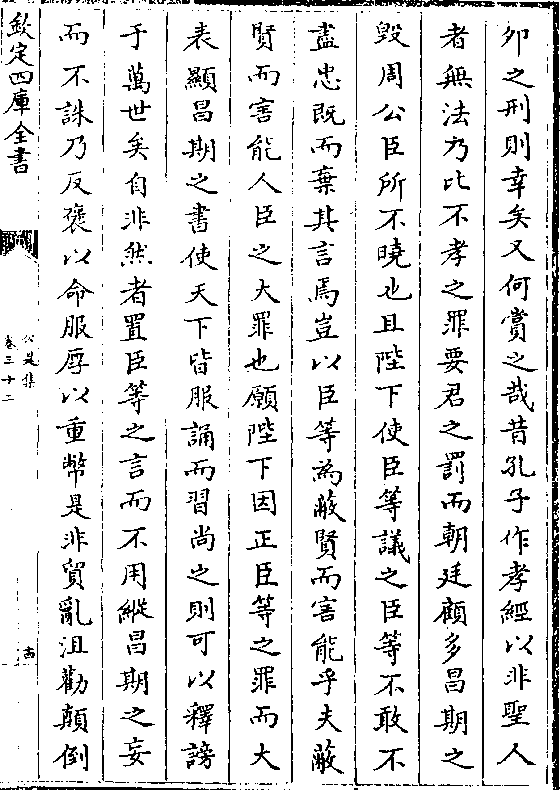 卯之刑則幸矣又何賞之哉昔孔子作孝經以非聖人
者無法乃比不孝之罪要君之罰而朝廷顧多昌期之
毀周公臣所不曉也且陛下使臣等議之臣等不敢不
盡忠既而棄其言焉豈以臣等為蔽賢而害能乎夫蔽
賢而害能人臣之大罪也願陛下因正臣等之罪而大
表顯昌期之書使天下皆服誦而習尚之則可以釋謗
于萬世矣自非然者置臣等之言而不用縱昌期之妄
而不誅乃反褒以命服厚以重幣是非貿亂沮勸顛倒
欽定四庫全書
公是集
卷三十二
十四